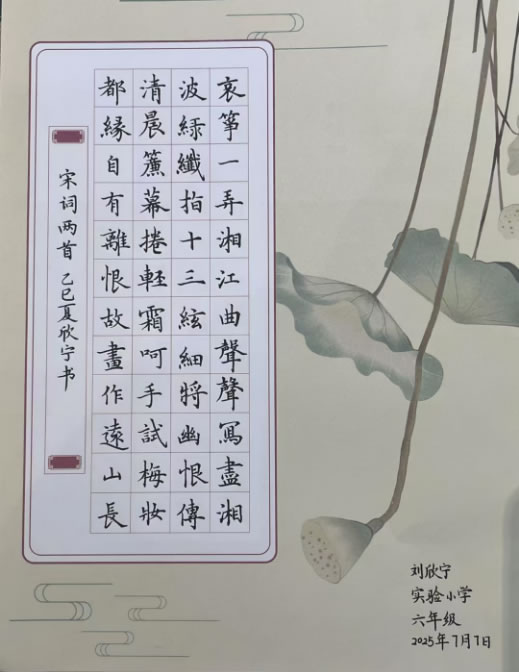 哀筝一弄湘江曲聲聲寫盡湘
波緑纖指十三絃細將幽恨傳
清晨簾幕捲輕霜呵手試梅妝
都縁自有離恨故畫作遠山長
宋词两首 乙巳夏欣宁书
刘欣宁
实验小学
六年级
2025年7月7日